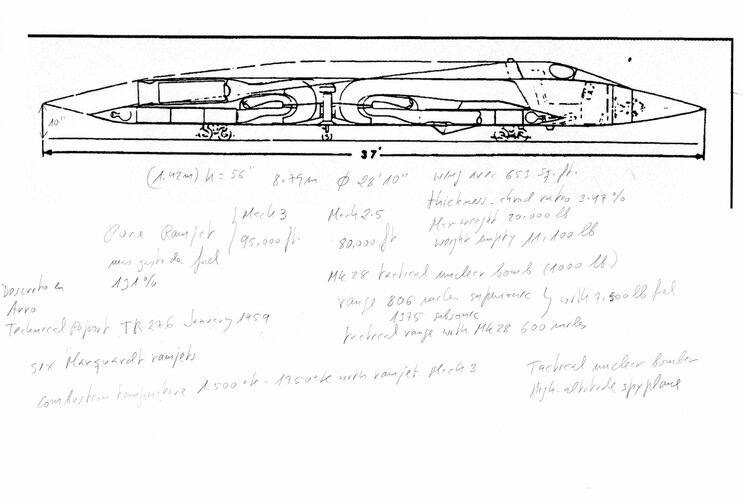 10"
37'
(1.42m) h = 56" 8.79m φ 28'10" wing area 653 sq.ft.
thickness-chord ratio 3.47%
Max weight 20.000 lb
weight empty 11,100 lb
Mach 3 Mach 2.5
Pure Ramjet 95,000 ft. 80,000 ft
mas gasto de fuel
191%
Mk 28 tactical nuclear bomb (1000 lb)
range 806 miles supersonic with 7,500 lb fuel
1375 subsonic
tactical range with Mk 28 600 miles
Descrito en
Avro
Technical Report TR 276 January 1959
six Marquardt ramjets
combustion temperature 1.500°K - 1750°K with ramjet Mach 3
Tactical nuclear bomber
High-altitude spyplane